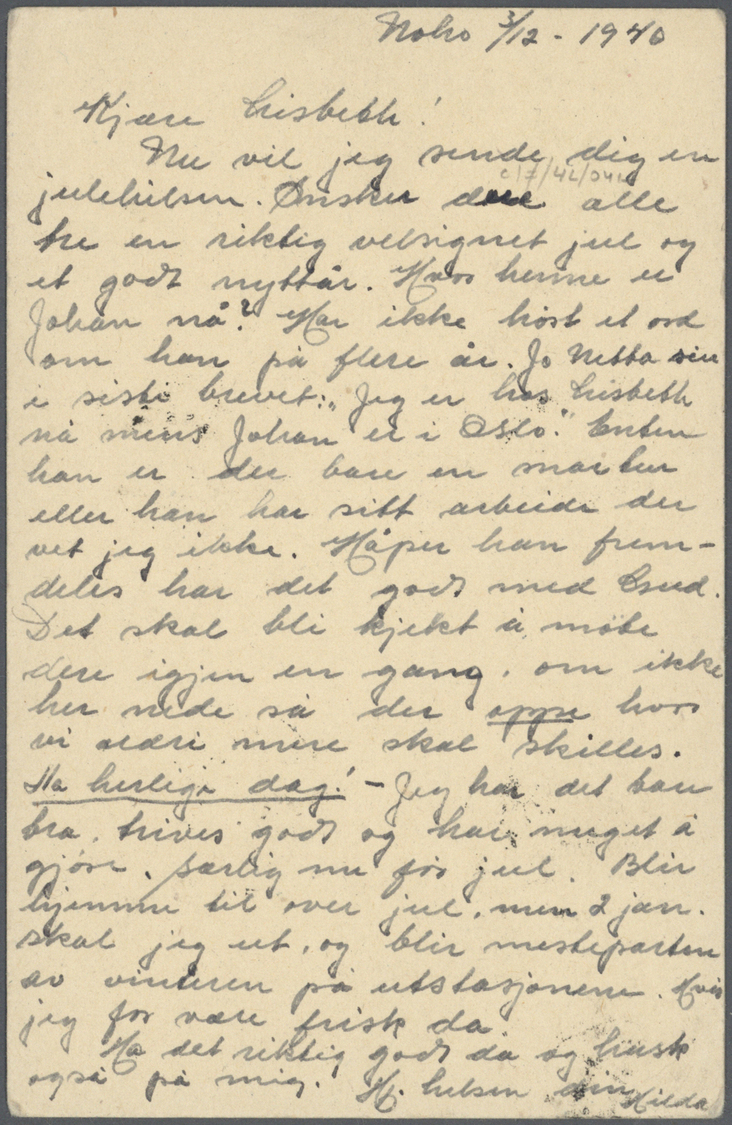 Noho 3/12 - 1940
Kjære Lisbeth!
Nu vil jeg sende dig en
julehilsen. Ønsker dere alle
tre en riktig velsignet jul og
et godt nyttår. Hvor henne er
Johan nå? Har ikke hørt et ord
om han på flere år. Jo Netta
i siste brevet: "Jeg er hos Lisbeth
nå mens Johan er i Oslo." Enten
han er der bare en snartur
eller han har sitt arbeide der
vet jeg ikke. Håper han frem-
deles har det godt med Gud.
Det skal bli kjekt å møte
dere igjen en gang, om ikke
her nede så der oppe hvor
vi aldri mere skal skilles.
Ha herlige dag! - Jeg har det bare
bra, trives godt og har meget å
gjøre, særlig nu før jul. Blir
hjemme til over jul, men 2 jan.
skal jeg ut, og blir mesteparten
av vinteren på utstasjonene. Hvis
jeg får være frisk da.
Ha det riktig godt da og husk
også på mig. Hj. hilsen din Hilda